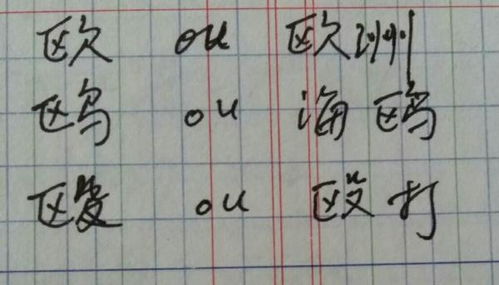 欧 ou 欧洲
鸥 ou 海鸥
殴 ou 殴打